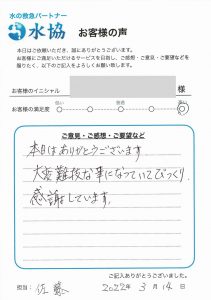 水の救急パートナー
水協 お客様の声
本日はご依頼いただき、誠にありがとうございます。
お客様にご満足いただけるサービスを目指し、ご感想・ご意見・ご要望などを
賜りたく、以下のご記入をよろしくお願い致します。
お客様のイニシャル 様
お客様の満足度 低い 普通 高い
ご意見・ご感想・ご要望など
本日はありがとうございます
大変難儀な事になっていてびっくり。
感謝しています。
ご記入ありがとうございました。
担当: 佐藤 2022年 3月 14日